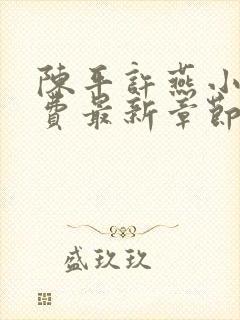 陳平許燕小
費最新章節
盛玖玖